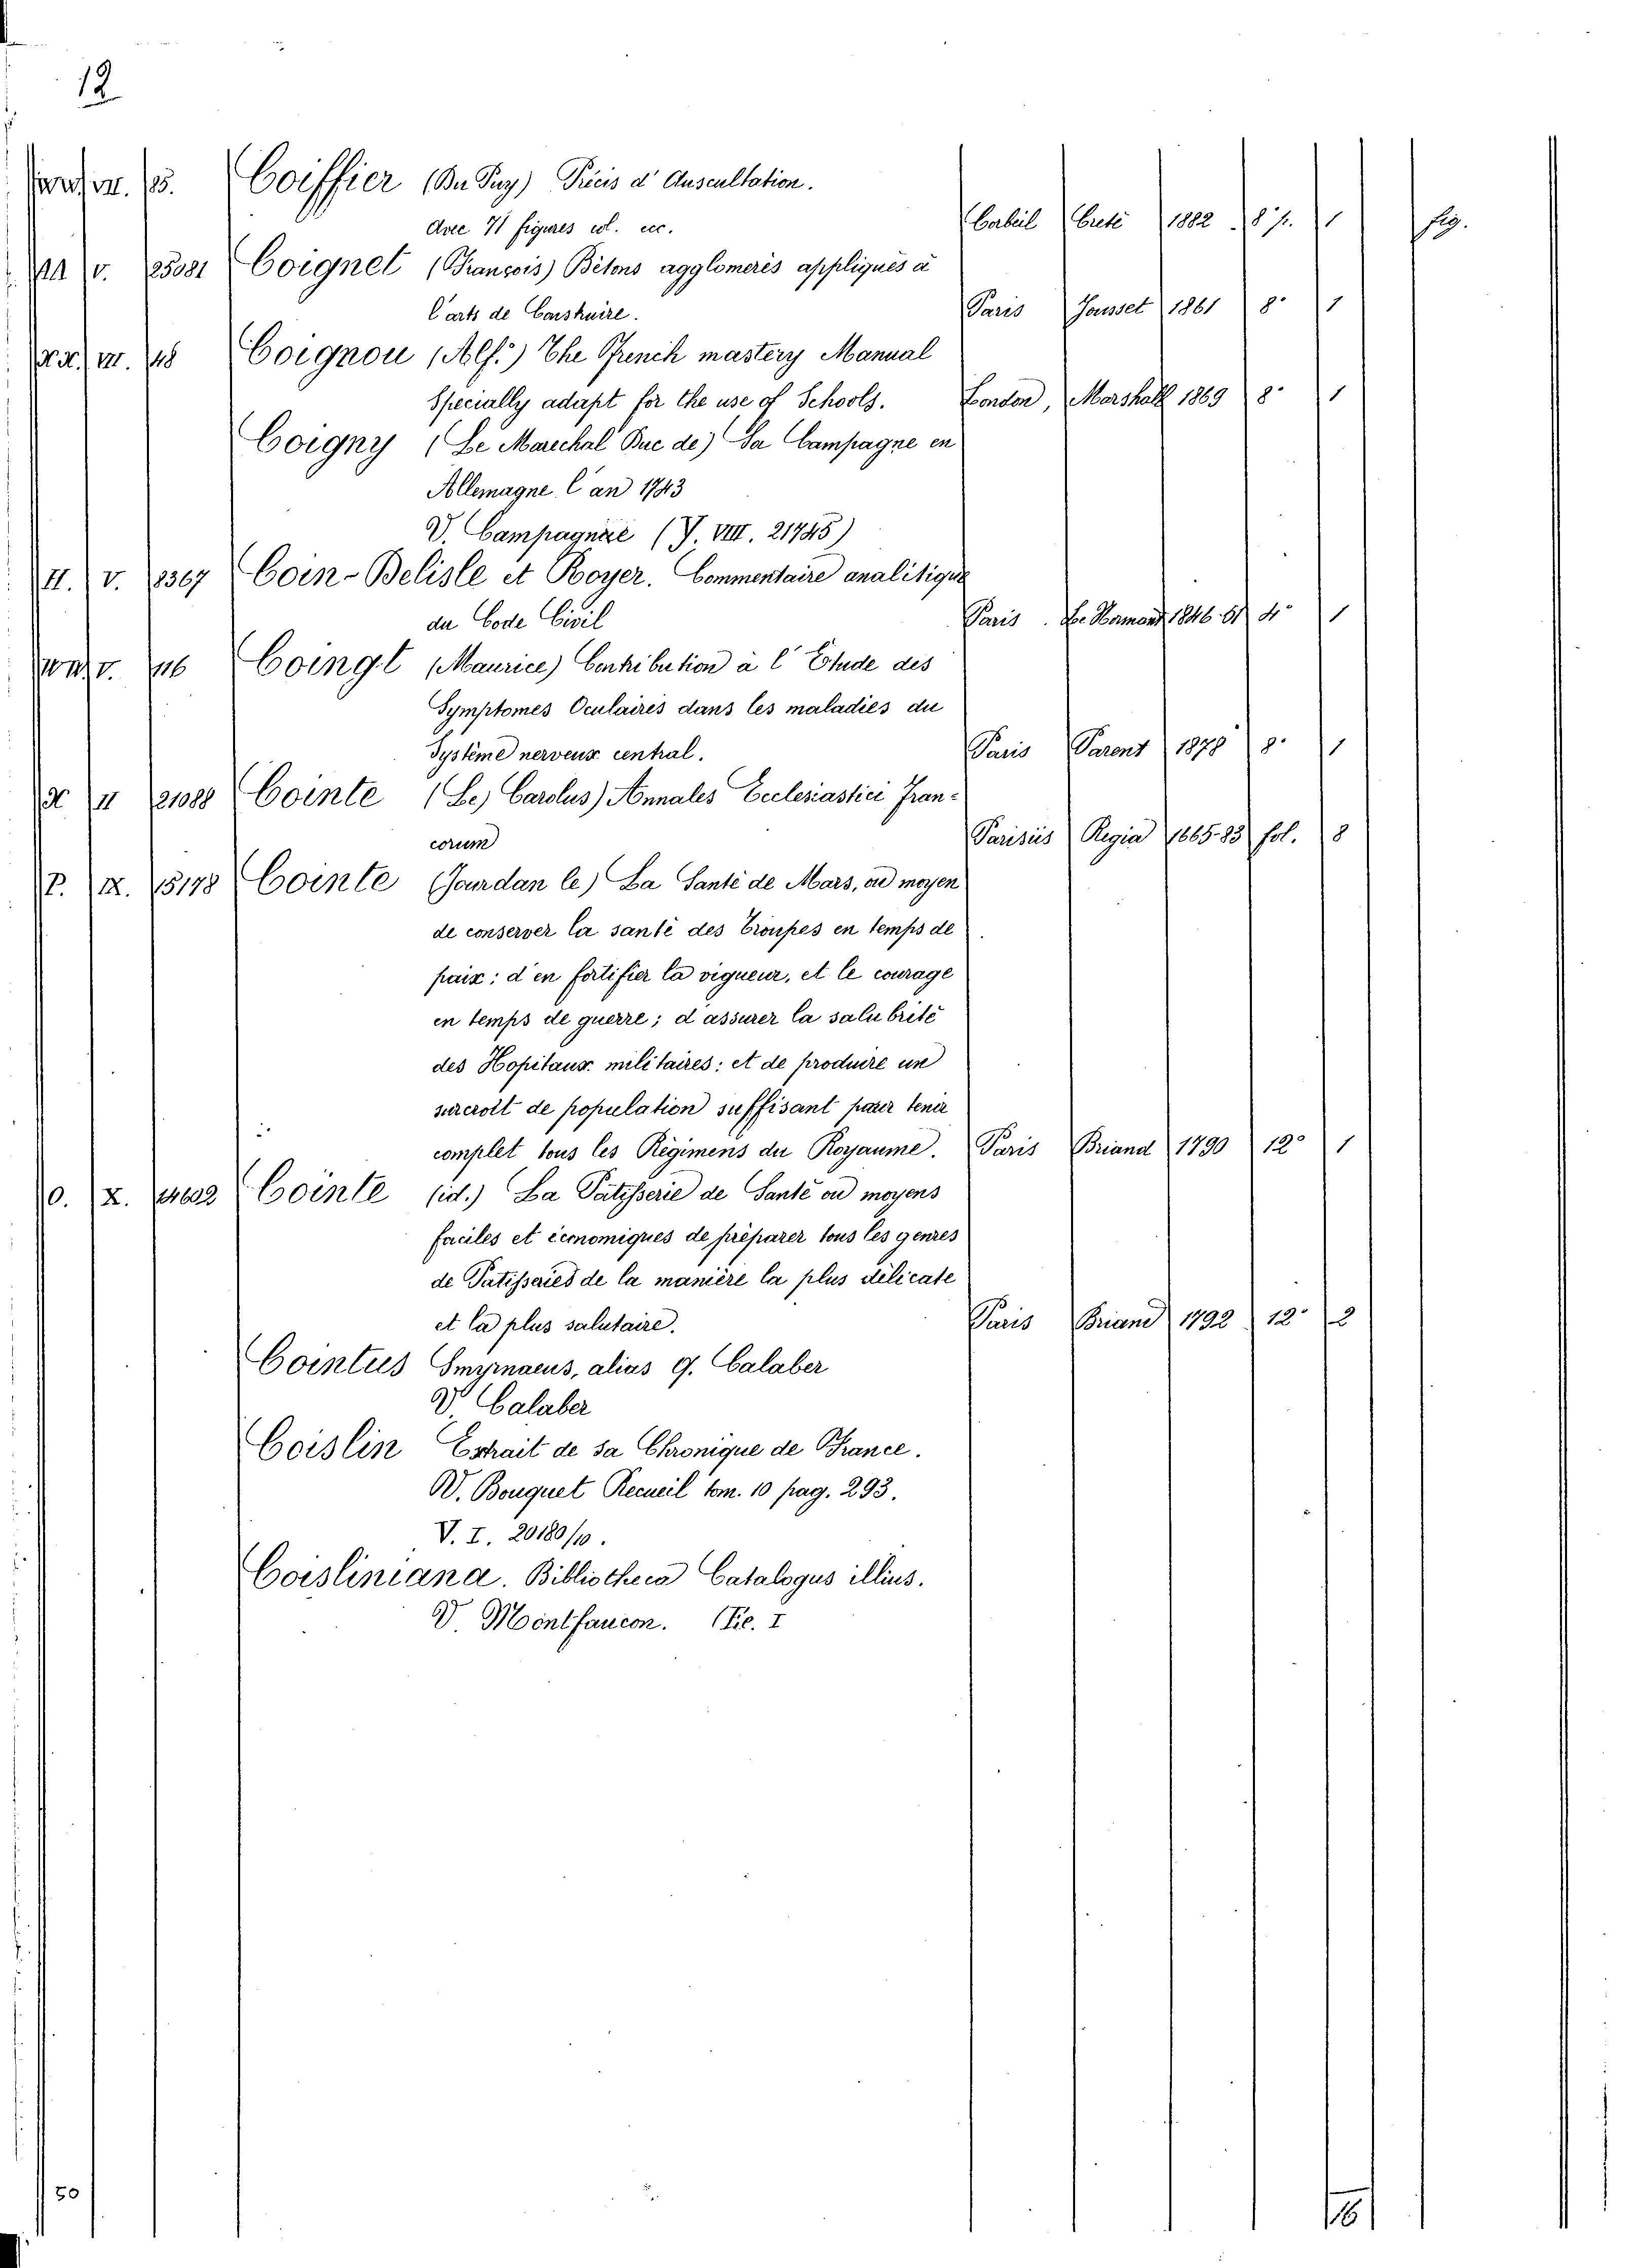 12
VII. 85. Coiffier (Du Puy) Précis d'Auscultation.
Avec 71 figures col. ecc. Corbeil Creté 1882 8° p. 1 fig.
V. 25081 Coignet (François) Bétons agglomerés appliqués à
l'arts de Construire. Paris Jousset 1861 8° 1
VII. 48 Coignou (Alf.) The French mastery Manual
Specially adapt for the use of Schools. London, Marshall 1869 8° 1
Coigny (Le Marechal Duc de) Sa Campagne en
Allemagne l'an 1743
V. Campagne (Y. VIII. 21745)
II. V. 8367 Coin-Belisle et Royer. Commentaire analitique
du Code Civil Paris 1846.51 4° 1
V. 116 Coingt (Maurice) Contribution à l'Etude des
Symptomes Oculaires dans les maladies du
Système nerveux central. Paris Parent 1878 8° 1
X II 21088 Cointe (Le) Carolus) Annales Ecclesiastici Fran-
corum Parisiis Regia 1665-83 fol. 8
P. IX. 15178 Cointe (Jourdan le) La Santé de Mars, ou moyen
de conserver la santé des troupes en temps de
paix; d'en fortifier la vigueur, et le courage
en temps de guerre; d'assurer la salubrité
des Hopitaux militaires; et de produire un
surcroît de population suffisant pour tenir
complet tous les Régimens du Royaume. Paris Briand 1790 12° 1
O. X. 14602 Cointe (id.) La Patisserie de Santé ou moyens
faciles et économiques de préparer tous les genres
de Patisseries de la manière la plus délicate
et la plus salutaire. Paris Briand 1792 12° 2
Cointus Smyrnaeus, alias Q. Calaber
V. Calaber
Coislin Extrait de sa Chronique de France.
V. Bouquet Recueil tom. 10 pag. 293.
V. I. 20180/10.
Coisliniana. Bibliotheca Catalogus illius.
V. Montfaucon.
50
16